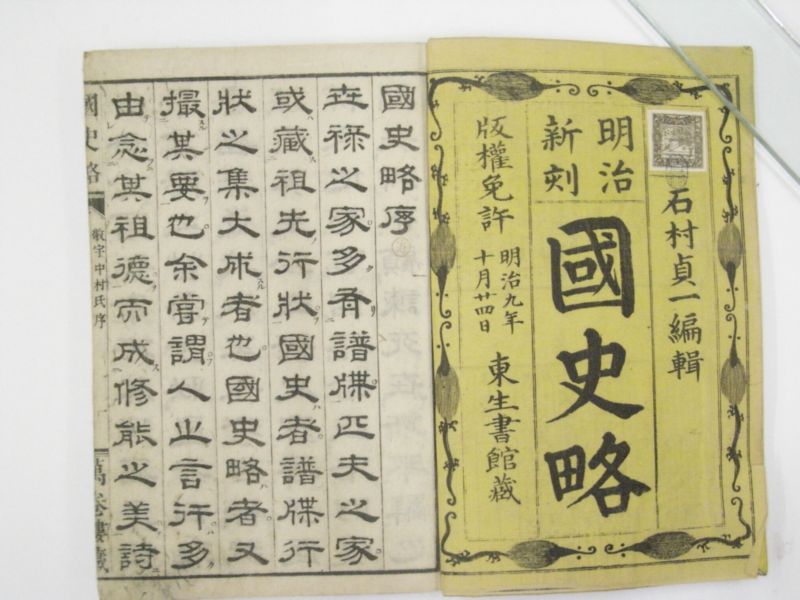 石村貞一編輯
明治
新刻
國史略
版權免許
明治九年
十月廿四日
東生書館藏
國史略序
在祿之家多有譜牒匹夫之家
或藏祖先行狀國史者譜牒行
狀之集大成者也國史略者又
撮其要也余嘗謂人之言行多
由念其祖德而成修能之美詩
國史略
敬宇中村氏序
萬卷樓藏